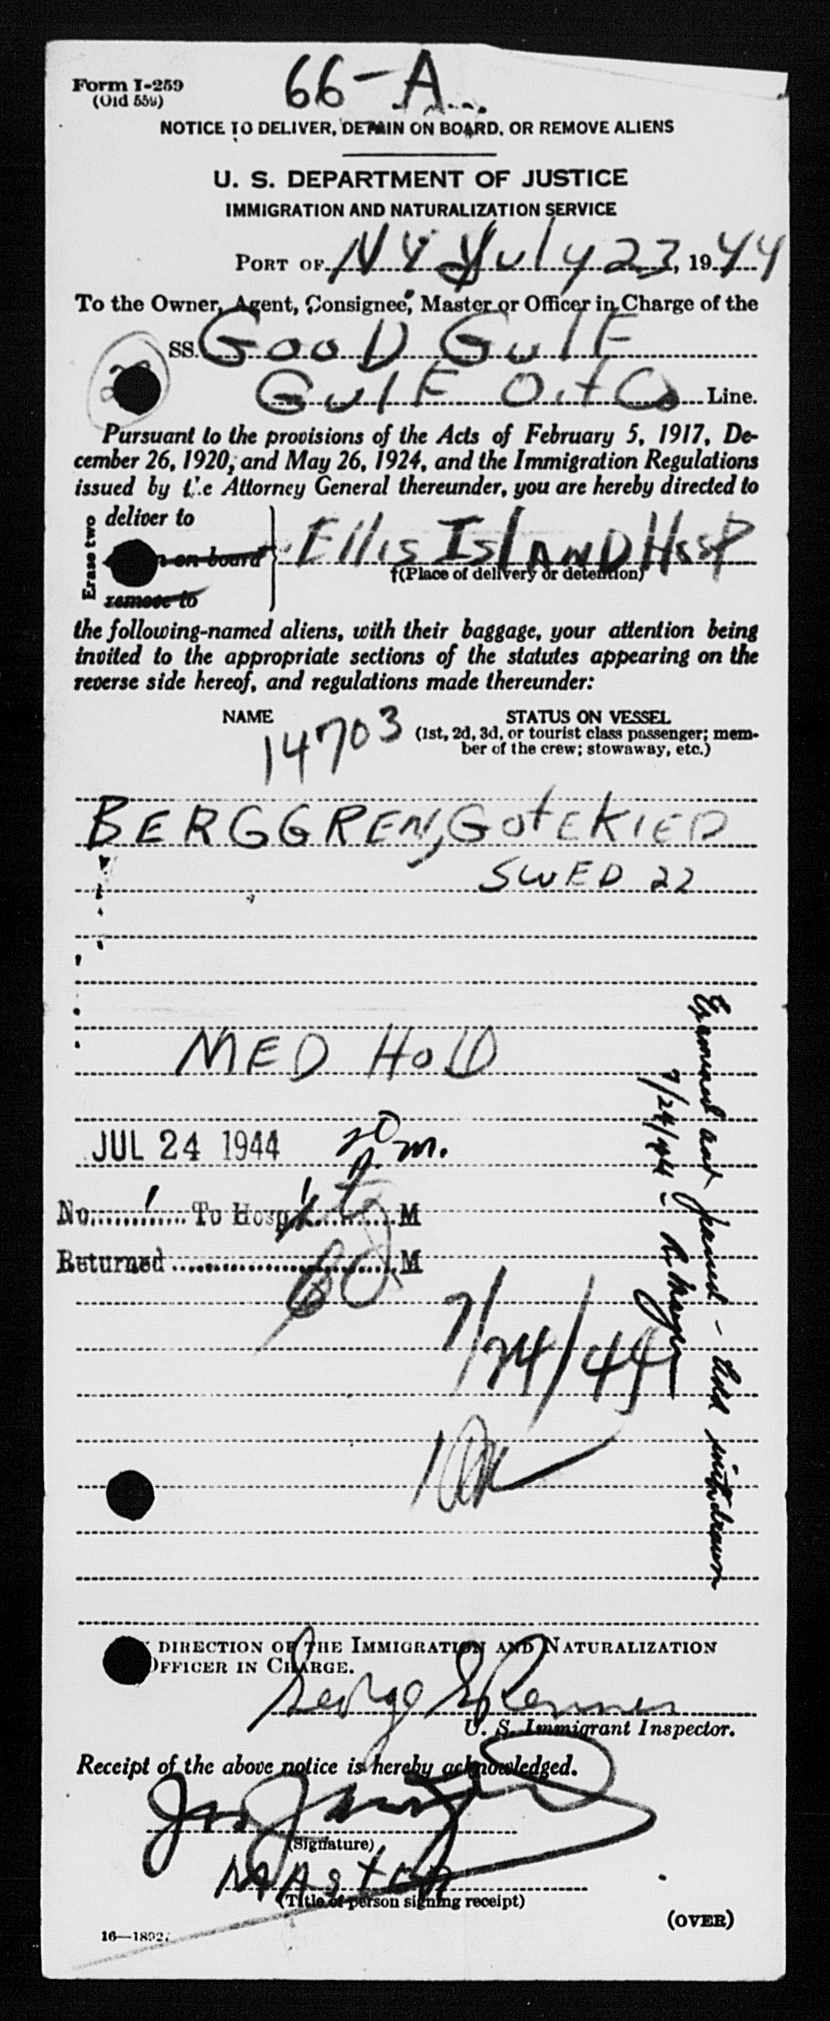 66-A
Form I-259
(Old 559)
NOTICE TO DELIVER, DETAIN ON BOARD, OR REMOVE ALIENS
U. S. DEPARTMENT OF JUSTICE
IMMIGRATION AND NATURALIZATION SERVICE
PORT OF N Y July 23, 1944
To the Owner, Agent, Consignee, Master or Officer in Charge of the
SS. GOOD GULF
GULF Oil Co Line.
Pursuant to the provisions of the Acts of February 5, 1917, De-
cember 26, 1920, and May 26, 1924, and the Immigration Regulations
issued by the Attorney General thereunder, you are hereby directed to
Erase two
deliver to
on board
remove to
Ellis IslAND Hosp
†(Place of delivery or detention)
the following-named aliens, with their baggage, your attention being
invited to the appropriate sections of the statutes appearing on the
reverse side hereof, and regulations made thereunder:
NAME
STATUS ON VESSEL
14703
(1st, 2d, 3d, or tourist class passenger; mem-
ber of the crew; stowaway, etc.)
BERGGREN, GotEKIED
SWED 22
MED HolD
JUL 24 1944
No. 1 To Hosp M
Returned M
7/24/44
Examined and passed - Hold withdrawn
7/24/44 -
DIRECTION OF THE IMMIGRATION AND NATURALIZATION
OFFICER IN CHARGE.
George Renner
U. S. Immigrant Inspector.
Receipt of the above notice is hereby acknowledged.
(Signature)
MAster
(Title of person signing receipt)
(OVER)
16—1892